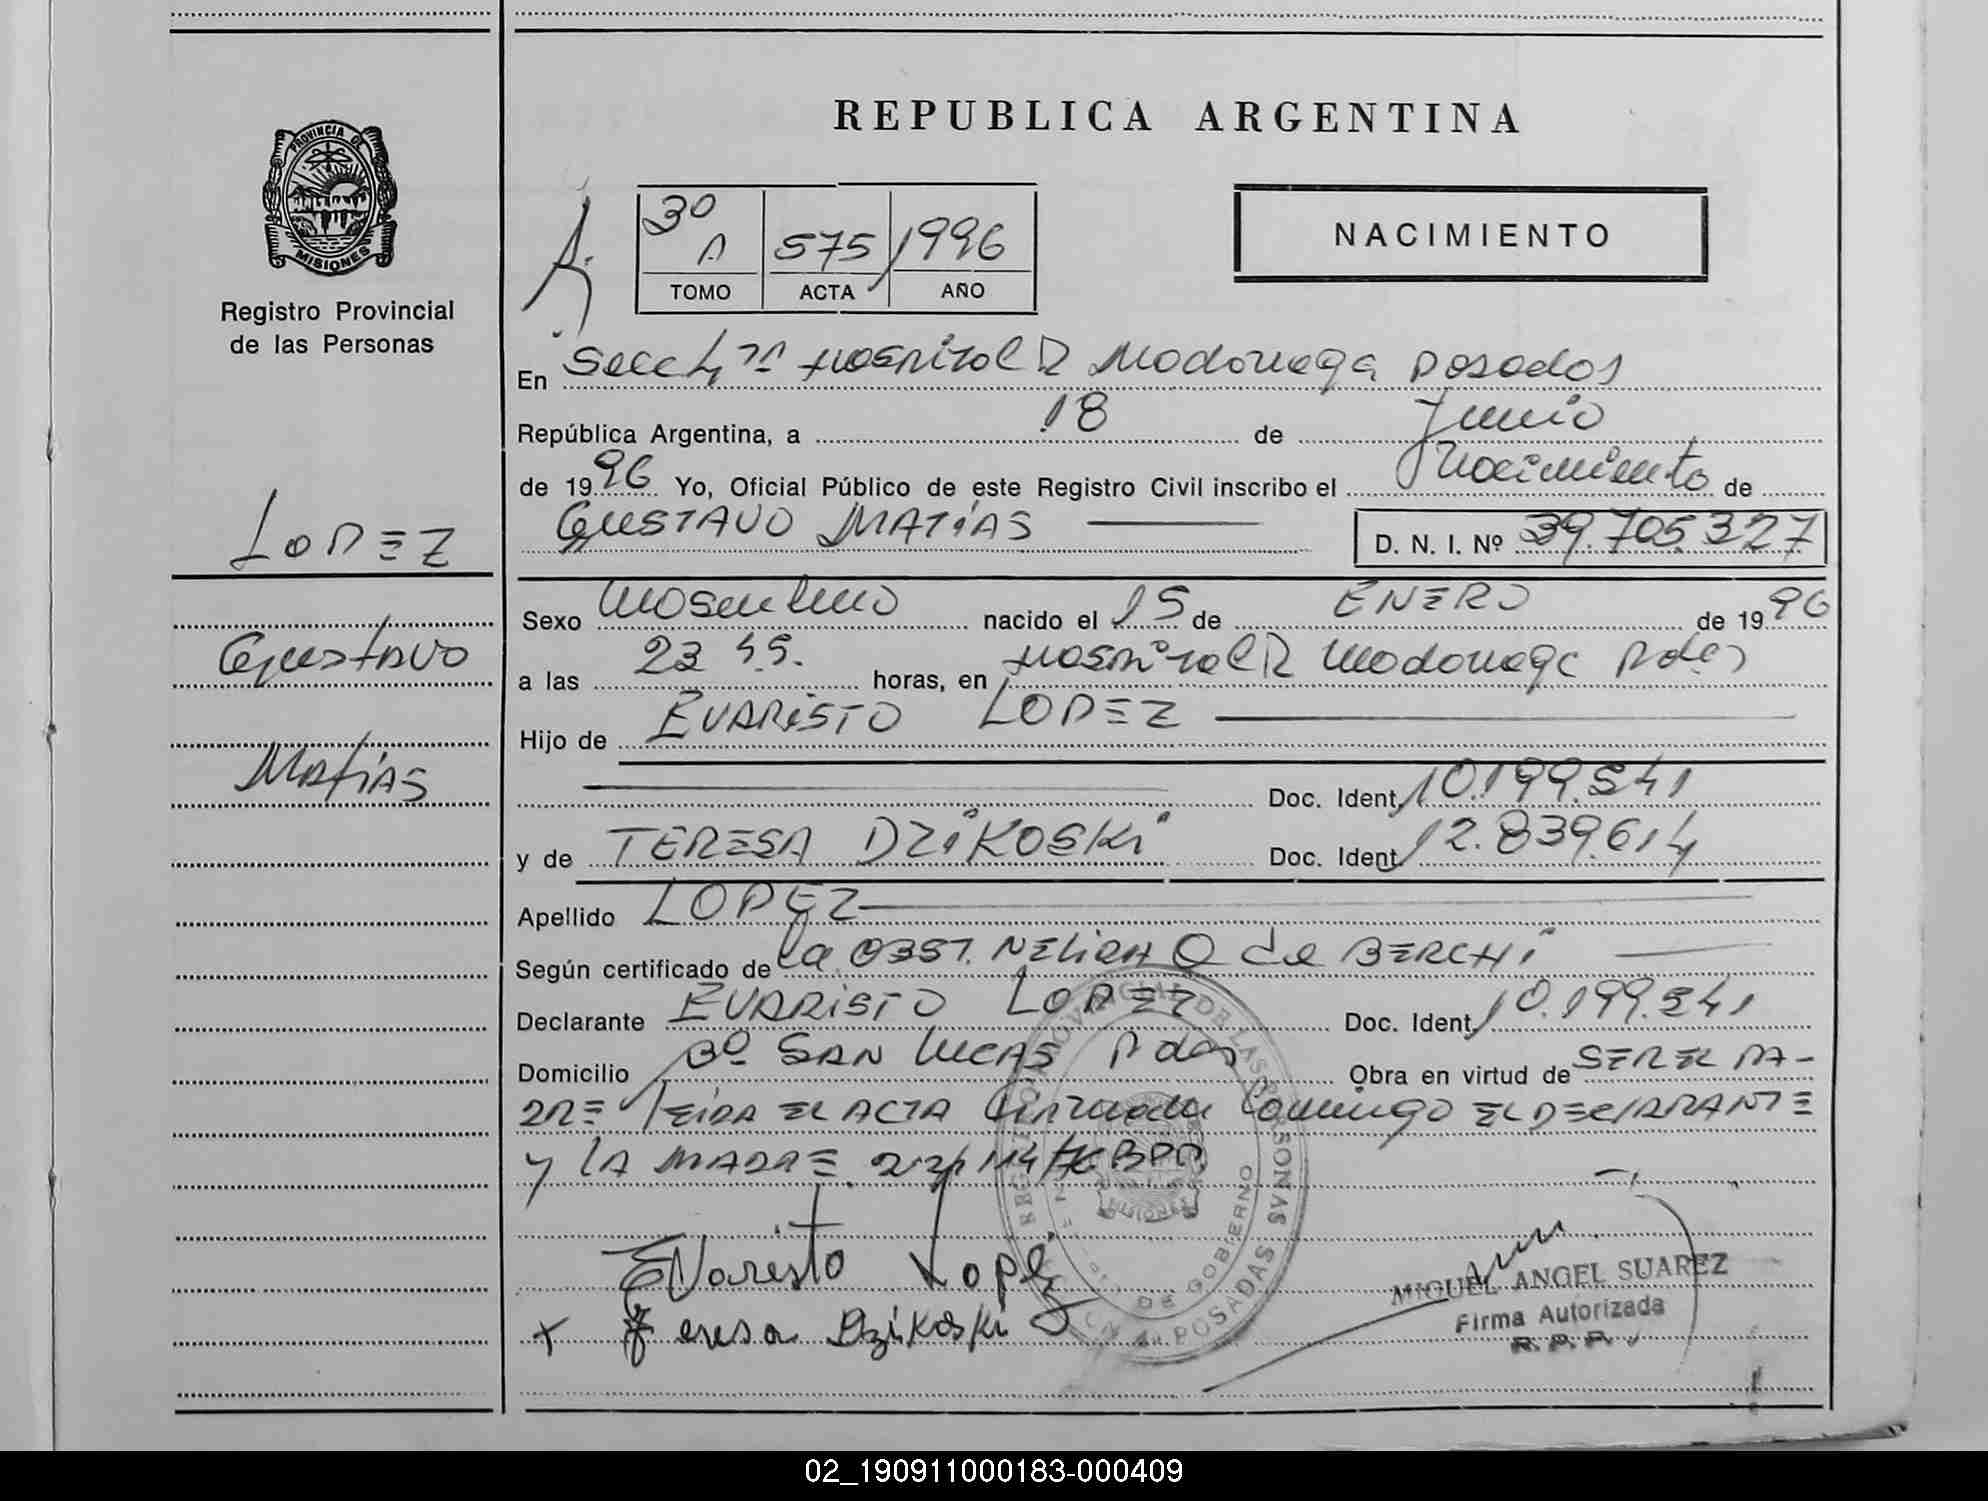 REPUBLICA ARGENTINA
PROVINCIA DE
MISIONES
Registro Provincial
de las Personas
3º
A
575
1996
TOMO ACTA AÑO
NACIMIENTO
En Secc 4ta Hospital R Madariaga Posadas
República Argentina, a 18 de Junio
de 1996 Yo, Oficial Público de este Registro Civil inscribo el Nacimiento de
GUSTAVO MATIAS D. N. I. Nº 39.705.327
LOPEZ
Gustavo
Matias
Sexo Masculino nacido el 15 de ENERO de 1996
a las 23 45. horas, en Hospital R Madariaga Pdas
Hijo de EVARISTO LOPEZ
Doc. Ident. 10.199.541
y de TERESA DZIKOSKI Doc. Ident. 12.839.614
Apellido LOPEZ
Según certificado de la OBST. NELIDA Q de BERCHI
Declarante EVARISTO LOPEZ Doc. Ident. 10.199.541
Domicilio Bº SAN LUCAS Pdas Obra en virtud de SER EL PA-
DRE LEIDA EL ACTA firmada conmigo EL DECLARANTE
y LA MADRE
Evaristo Lopez
x Teresa Dzikoski
REGISTRO PROVINCIAL DE LAS PERSONAS
DE GOBIERNO
MISIONES
POSADAS
MIGUEL ANGEL SUAREZ
Firma Autorizada
R. P. P.
02_190911000183-000409